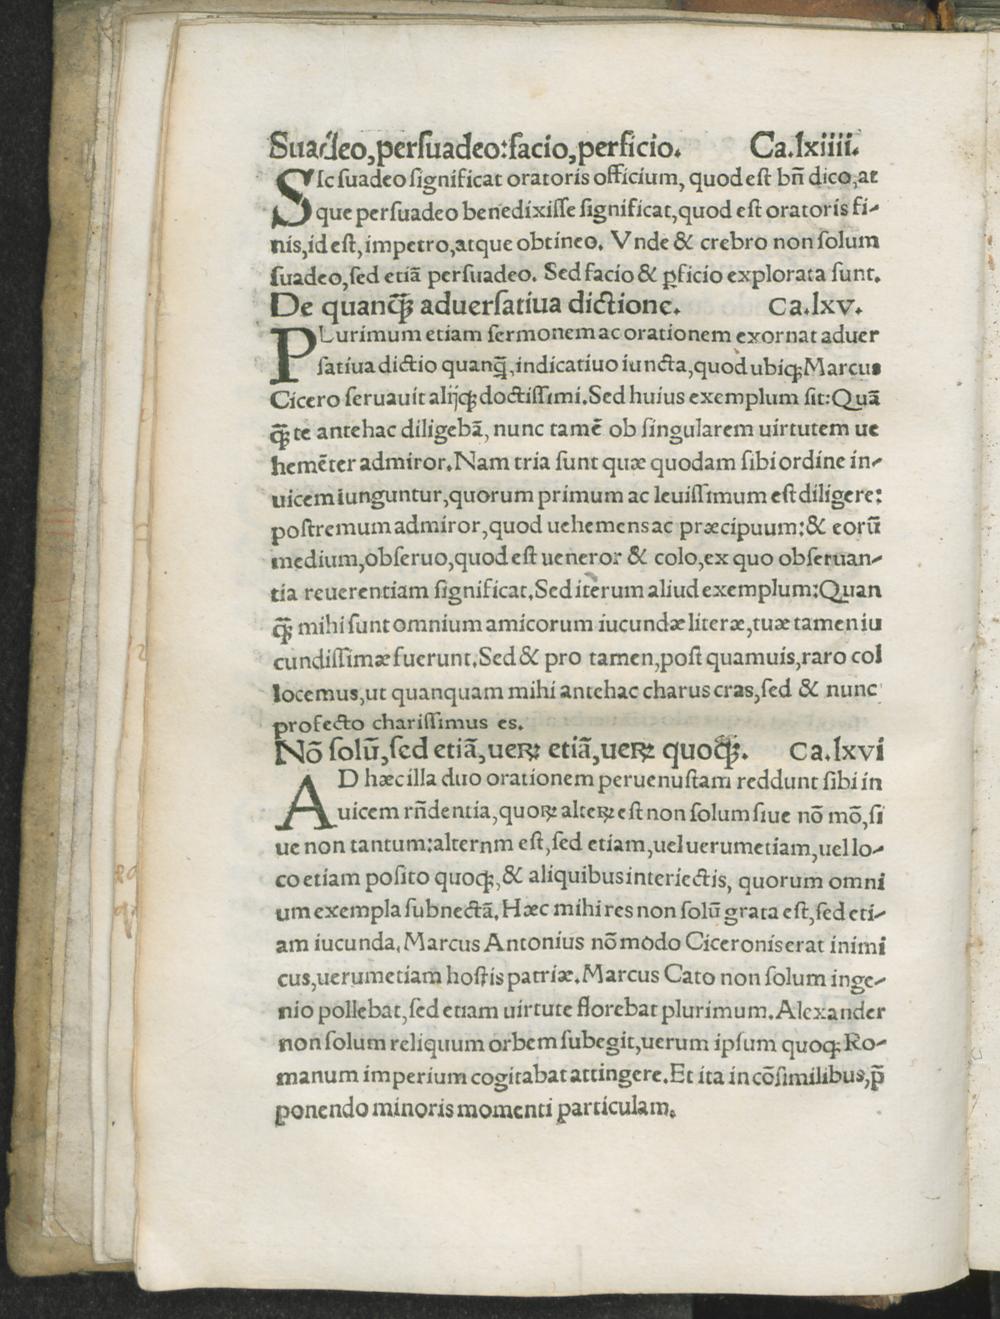 Suadeo,perſuadeo:facio,perficio. Ca.lxiiii.
SIc ſuadeo ſignificat oratoris officium, quod eſt bñ dico,at
que perſuadeo benedixiſſe ſignificat,quod eſt oratoris fi-
nis,id eſt,impetro,atque obtineo. Vnde & crebro non ſolum
ſuadeo,ſed etiã perſuadeo. Sed facio & ꝑficio explorata ſunt.
De quancꝗ̃ aduerſatiua dictione. Ca.lxv.
PLurimum etiam ſermonem ac orationem exornat aduer
ſatiua dictio quanꝗ̃,indicatiuo iuncta,quod ubiqꝫ Marcus
Cicero ſeruauit alijqꝫ doctiſſimi.Sed huius exemplum ſit:Quã
qꝫ̃ te antehac diligebã, nunc tamẽ ob ſingularem uirtutem ue
hemẽter admiror.Nam tria ſunt quæ quodam ſibi ordine in-
uicem iunguntur,quorum primum ac leuiſſimum eſt diligere:
poſtremum admiror,quod uehemens ac præcipuum:& eorũ
medium,obſeruo,quod eſt ueneror & colo,ex quo obſeruan-
tia reuerentiam ſignificat.Sed iterum aliud exemplum:Quan
qꝫ̃ mihi ſunt omnium amicorum iucundæ literæ,tuæ tamen iu
cundiſſimæ fuerunt.Sed & pro tamen,poſt quamuis,raro col
locemus,ut quanquam mihi antehac charus eras,ſed & nunc
profecto chariſſimus es.
Nõ ſolũ,ſed etiã,ueꝝ etiã,ueꝝ quoqꝫ. Ca.lxvi
AD hæc illa duo orationem peruenuſtam reddunt ſibi in
uicem rñdentia,quoꝝ alteꝝ eſt non ſolum ſiue nõ mõ,ſi
ue non tantum:alternm eſt,ſed etiam,uel uerumetiam,uel lo-
co etiam poſito quoqꝫ,& aliquibus interiectis, quorum omni
um exempla ſubnectã.Hæc mihi res non ſolũ grata eſt,ſed eti-
am iucunda.Marcus Antonius nõ modo Ciceronis erat inimi
cus,uerumetiam hoſtis patriæ.Marcus Cato non ſolum inge-
nio pollebat,ſed etiam uirtute florebat plurimum.Alexander
non ſolum reliquum orbem ſubegit,uerum ipſum quoqꝫ Ro-
manum imperium cogitabat attingere.Et ita in cõſimilibus,p̃
ponendo minoris momenti particulam.